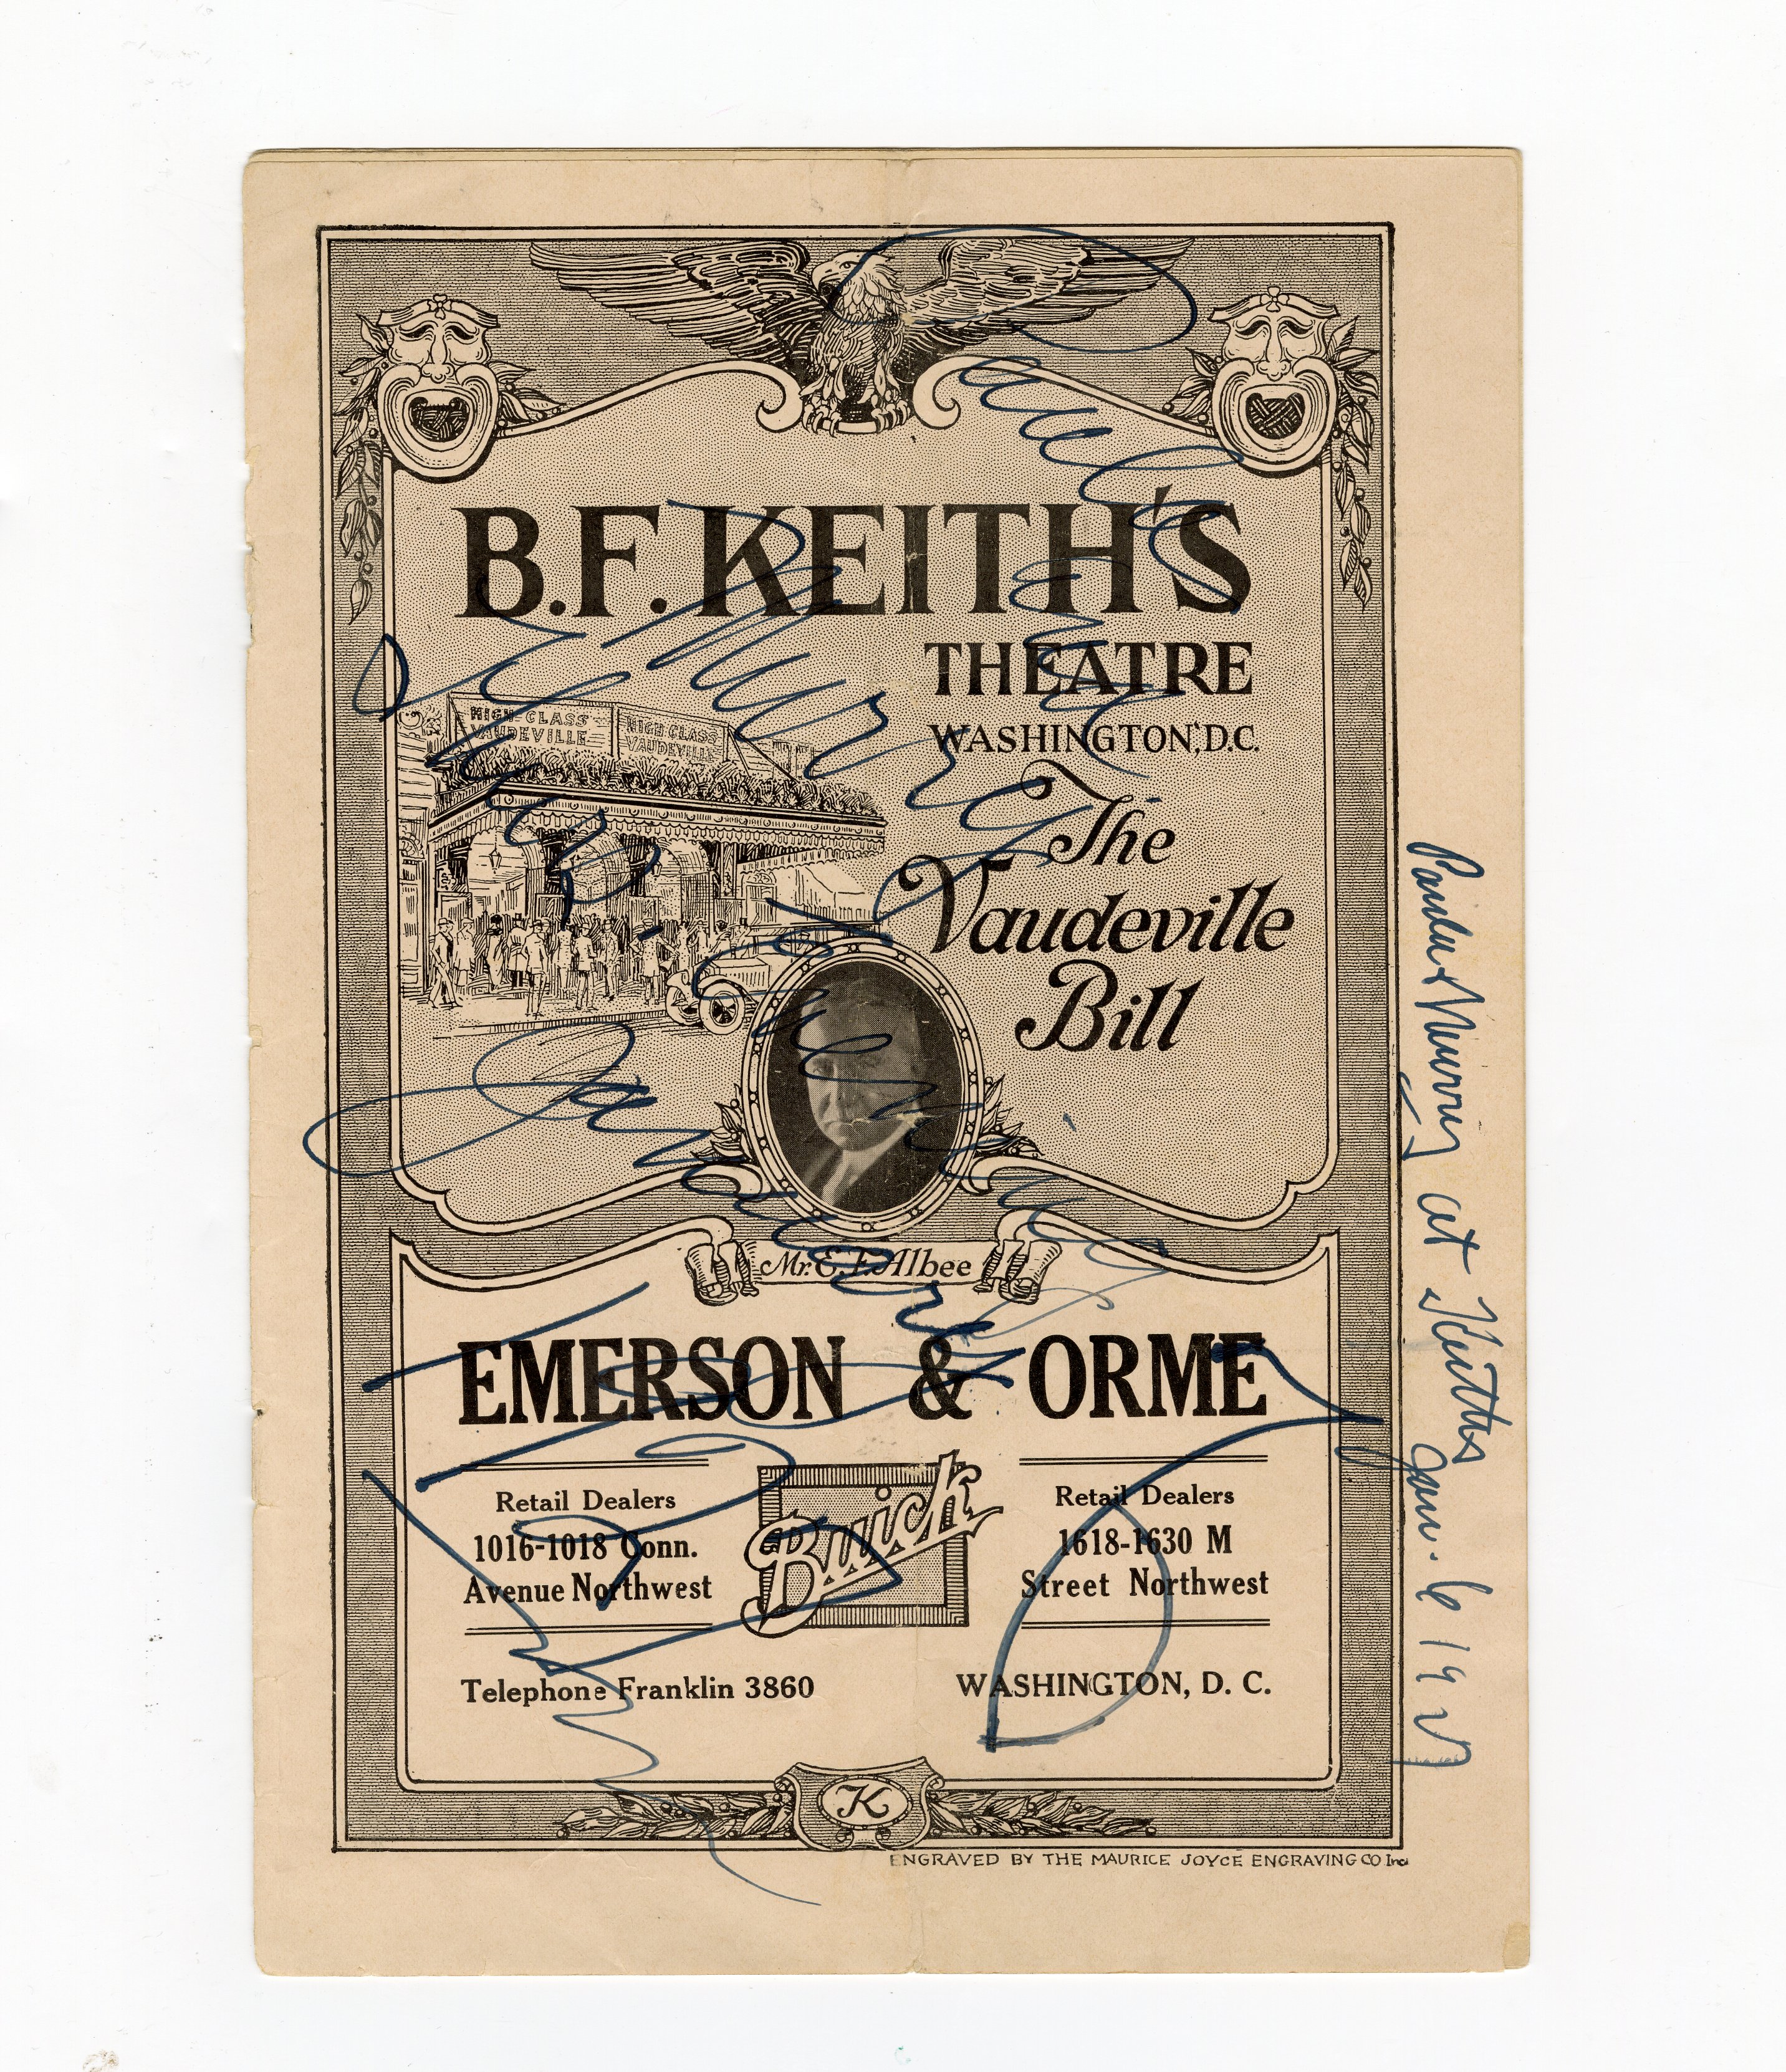 B.F. KEITH'S
THEATRE
WASHINGTON, D.C.
HIGH-CLASS VAUDEVILLE
HIGH CLASS VAUDEVILLE
The
Vaudeville
Bill
Mr. E. F. Albee
EMERSON & ORME
Retail Dealers
1016-1018 Conn.
Avenue Northwest
Buick
Retail Dealers
1618-1630 M
Street Northwest
Telephone Franklin 3860
WASHINGTON, D. C.
K
ENGRAVED BY THE MAURICE JOYCE ENGRAVING CO Inc
Paula
and
Murry
January
at Keiths Jan. 6 19